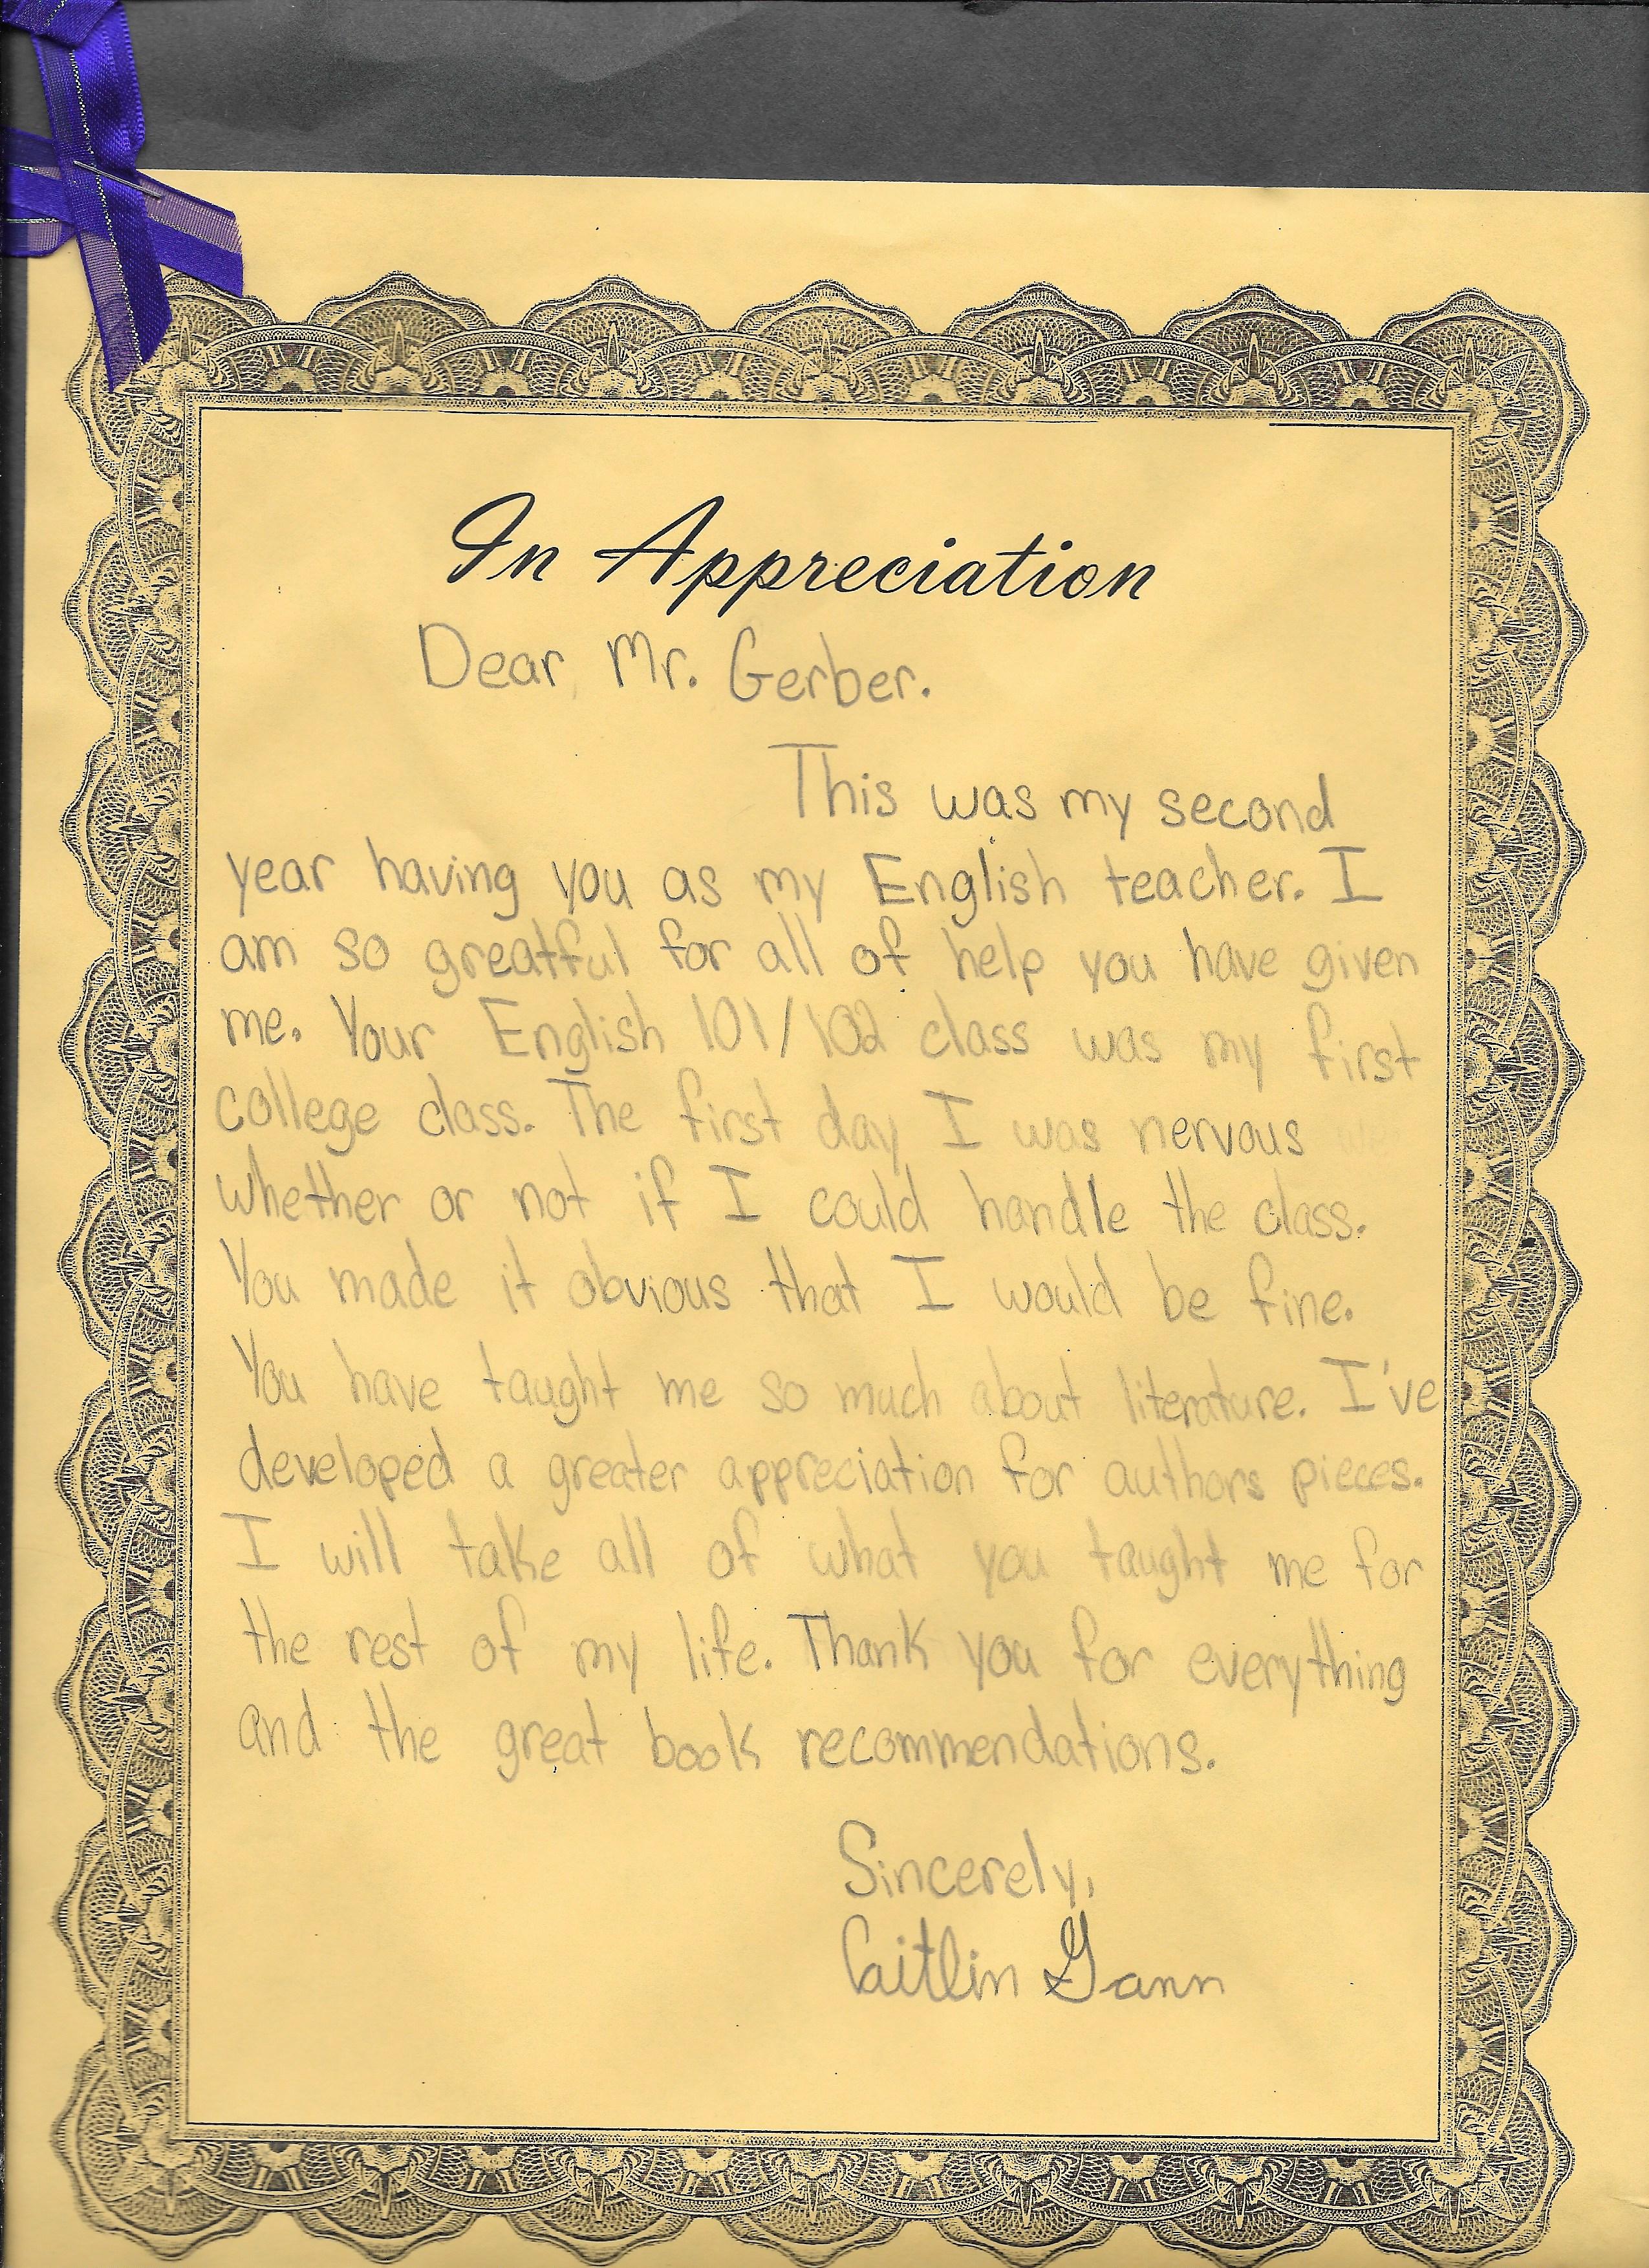 In Appreciation
Dear Mr. Gerber.
This was my second
year having you as my English teacher. I
am so greatful for all of help you have given
me. Your English 101/102 class was my first
college class. The first day I was nervous
whether or not if I could handle the class.
You made it obvious that I would be fine.
You have taught me so much about literature. I've
developed a greater appreciation for authors pieces.
I will take all of what you taught me for
the rest of my life. Thank you for everything
and the great book recommendations.
Sincerely,
Caitlin Gann